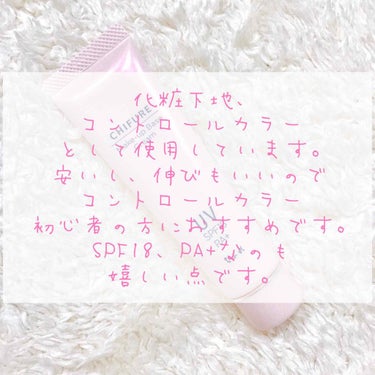 化粧下地、
コントロールカラー
として使用しています。
安いし、伸びもいいので
コントロールカラー
初心者の方におすすめです。
SPF18、PA+なのも
嬉しい点です。
CHIFURE
Make-up Base
UV